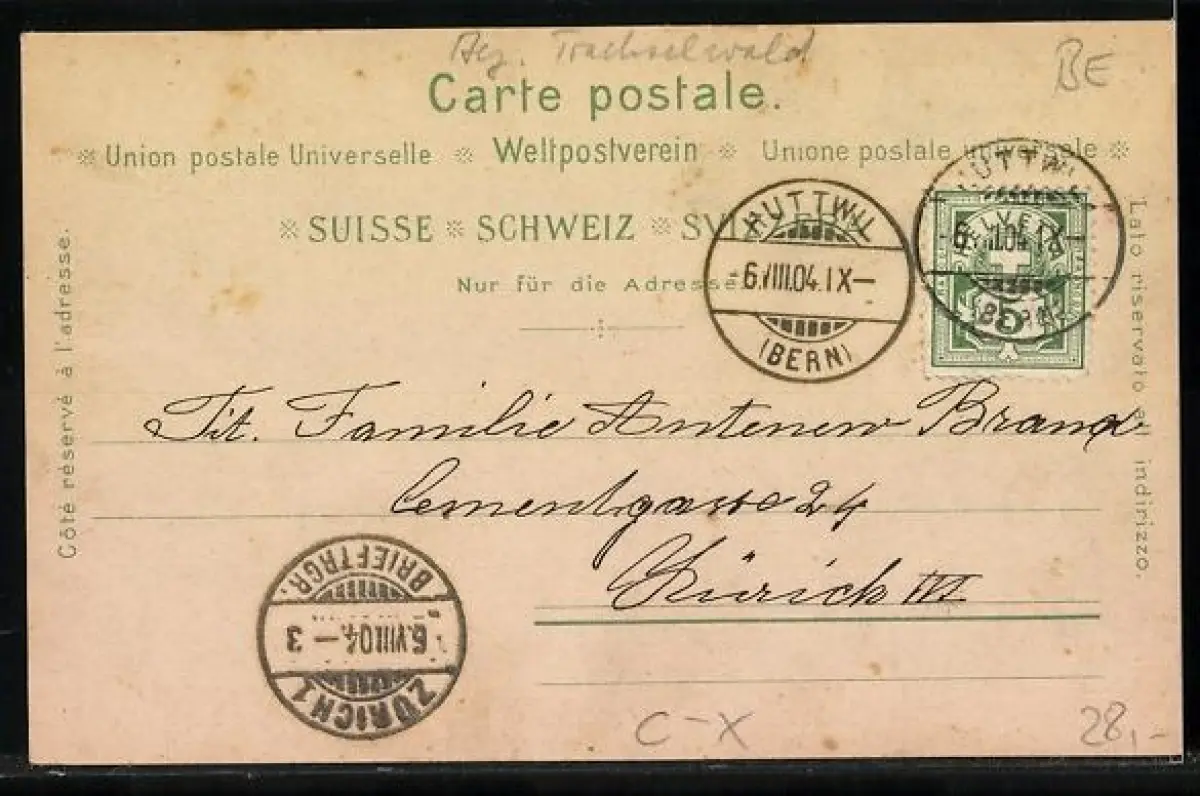 Bez. Trachselwald
BE
Carte postale.
Union postale Universelle Weltpostverein Unione postale universale
SUISSE SCHWEIZ SVIZZERA
Nur für die Adresse
HUTTWIL
6.VIII.04.IX-
(BERN)
HUTTWIL
6.VIII.04.IX-
(BERN)
HELVETIA
5
Côté réservé à l'adresse.
Lato riservato all indirizzo.
Tit. Familie Antenen Brand
Cementgasse 24
Zürich III
BRIEFTRGR.
6.VIII.04.-3
ZÜRICH 1
C-X
28,-